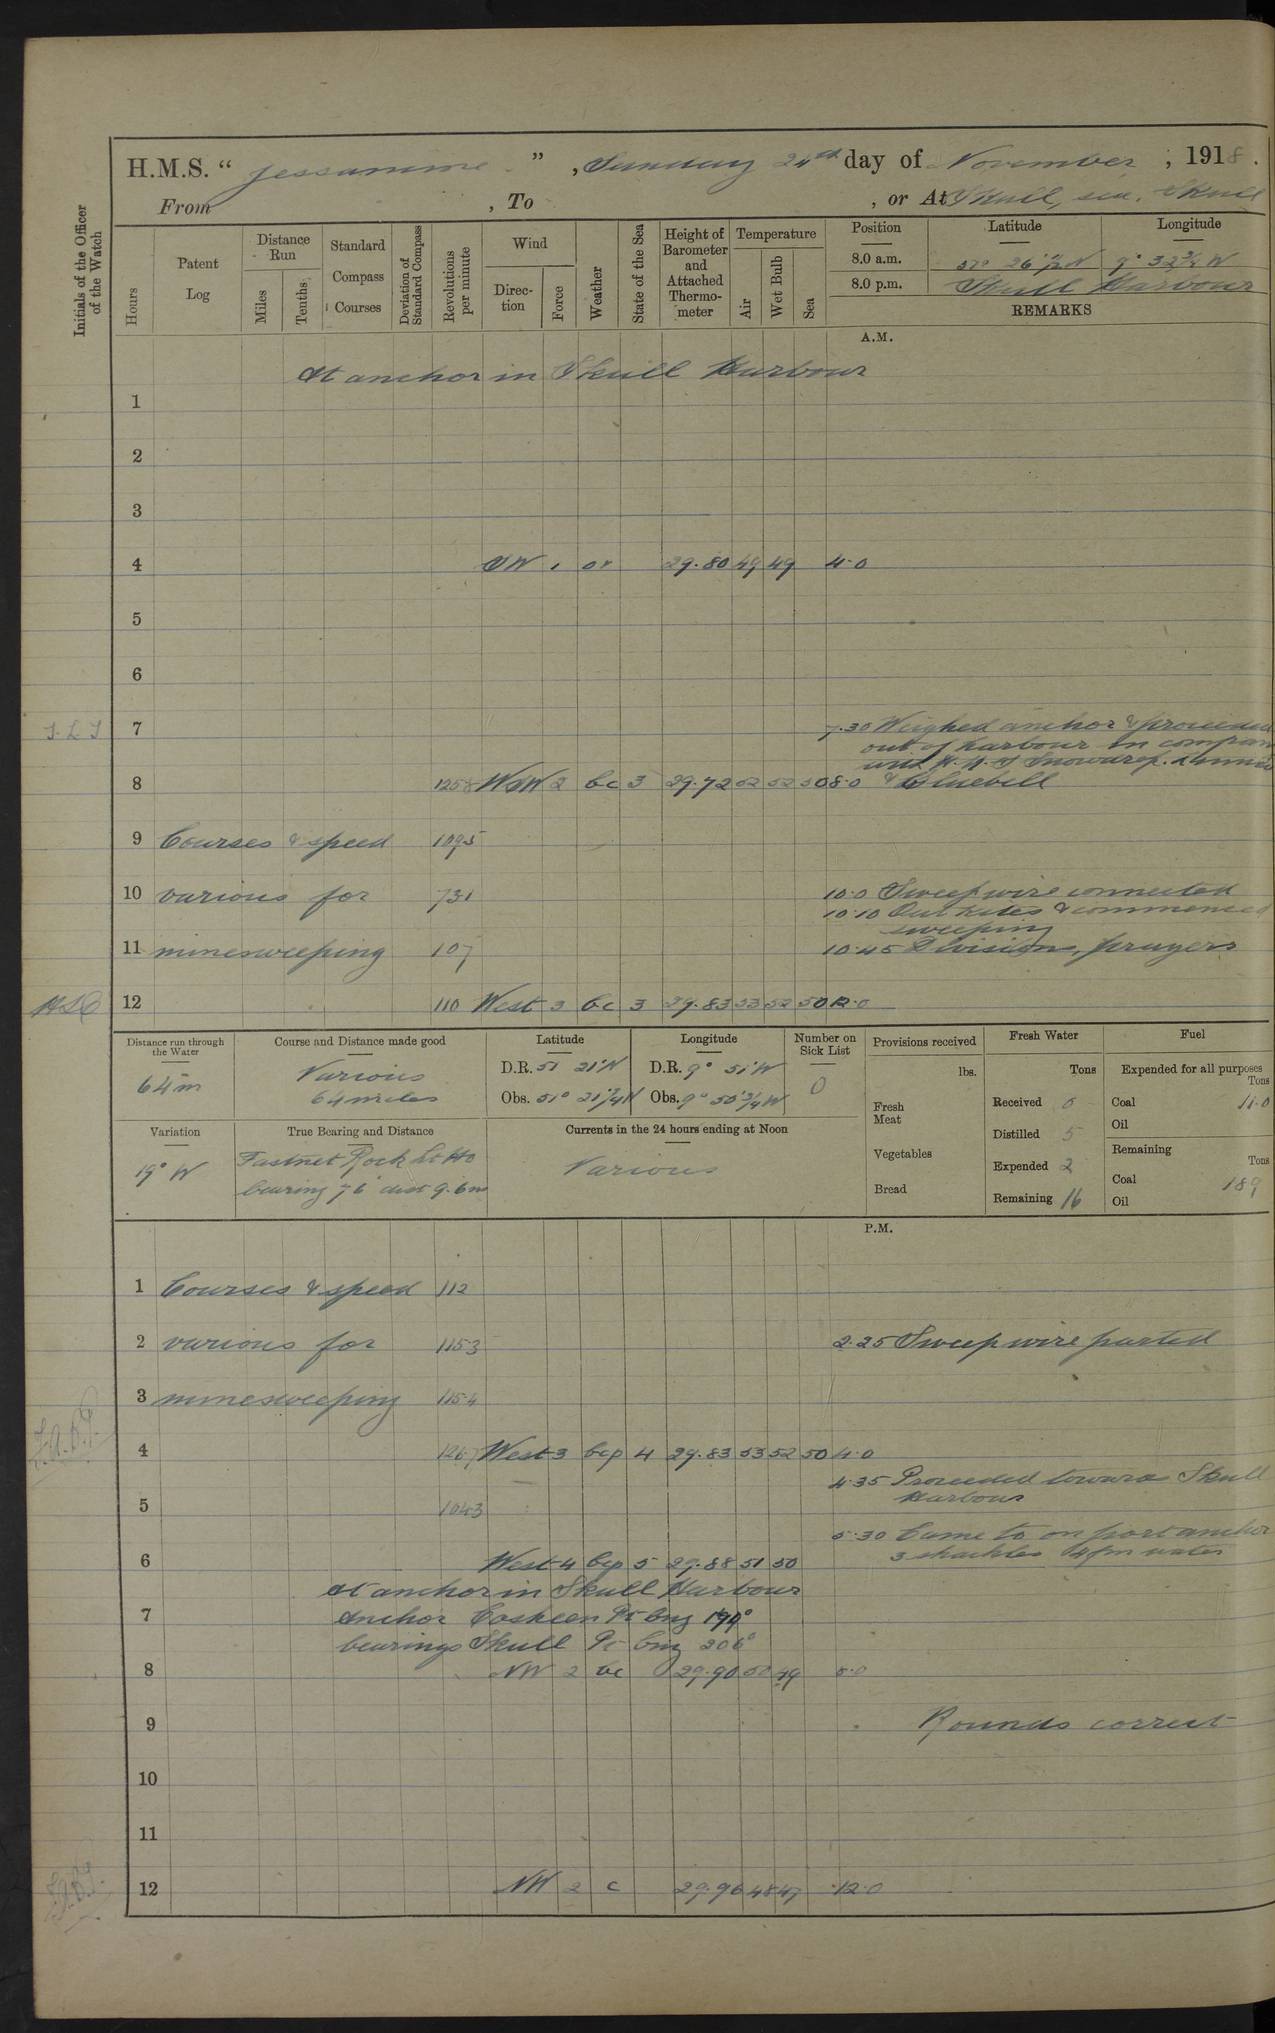 H.M.S. "Jessamine", Sunday 24th day of November, 1918.
From , To , or At Skull, sea, Skull
Initials of the Officer of the Watch
Hours
Patent Log
Distance Run
Miles
Tenths
Standard Compass Courses
Deviation of Standard Compass
Revolutions per minute
Wind
Direction
Force
Weather
State of the Sea
Height of Barometer and Attached Thermometer
Temperature
Air
Wet Bulb
Sea
Position Latitude Longitude
8.0 a.m. 51° 26'1/2 N 9° 32 3/4 W
8.0 p.m. Skull Harbour
REMARKS
A.M.
At anchor in Skull Harbour
1
2
3
4 SW 1 or 29.80 49 49 4.0
5
6
7 7.30 Weighed anchor & proceeded
out of harbour in company
with H.M.S Snowdrop,
8 125.8 WSW 2 bc 3 29.72 52 52 50 8.0 & Bluebell
9 Courses & speed 109.5
10 various for 73.1 10.0 Sweep wire connected
10.10 Out kites & commenced
sweeping
11 minesweeping 107 10.45 Divisions, prayers
12 110 West 3 bc 3 29.83 53 52 50 12.0
Distance run through the Water
64 m
Course and Distance made good
Various
64 miles
Latitude
D.R. 51 21' N
Obs. 51° 21'1/4 N
Longitude
D.R. 9° 51' W
Obs. 9° 50'3/4 W
Number on Sick List
0
Provisions received
lbs.
Fresh Meat
Vegetables
Bread
Fresh Water
Tons
Received 0
Distilled 5
Expended 2
Remaining 16
Fuel
Expended for all purposes
Tons
Coal 11.0
Oil
Remaining
Tons
Coal 189
Oil
Variation
19° W
True Bearing and Distance
Fastnet Rock Lt Ho
bearing 76° dist 9.6 m
Currents in the 24 hours ending at Noon
Various
P.M.
1 Courses & speed 112
2 various for 115.3 2.25 Sweep wire parted
3 minesweeping 115.4
4 126.7 West 3 bcp 4 29.83 53 52 50 4.0
4.35 Proceeded towards Skull
Harbour
5 104.3
5.30 Came to on port anchor
3 shackles 4 fm water
6 West 4 bcp 5 29.88 51 50
At anchor in Skull Harbour
7 Anchor Cosheen Pt brg 194°
bearings Skull Pt brg 206°
8 NW 2 bc 29.90 50 49 8.0
9 Rounds correct
10
11
12 NW 2 c 29.96 48 47 12.0